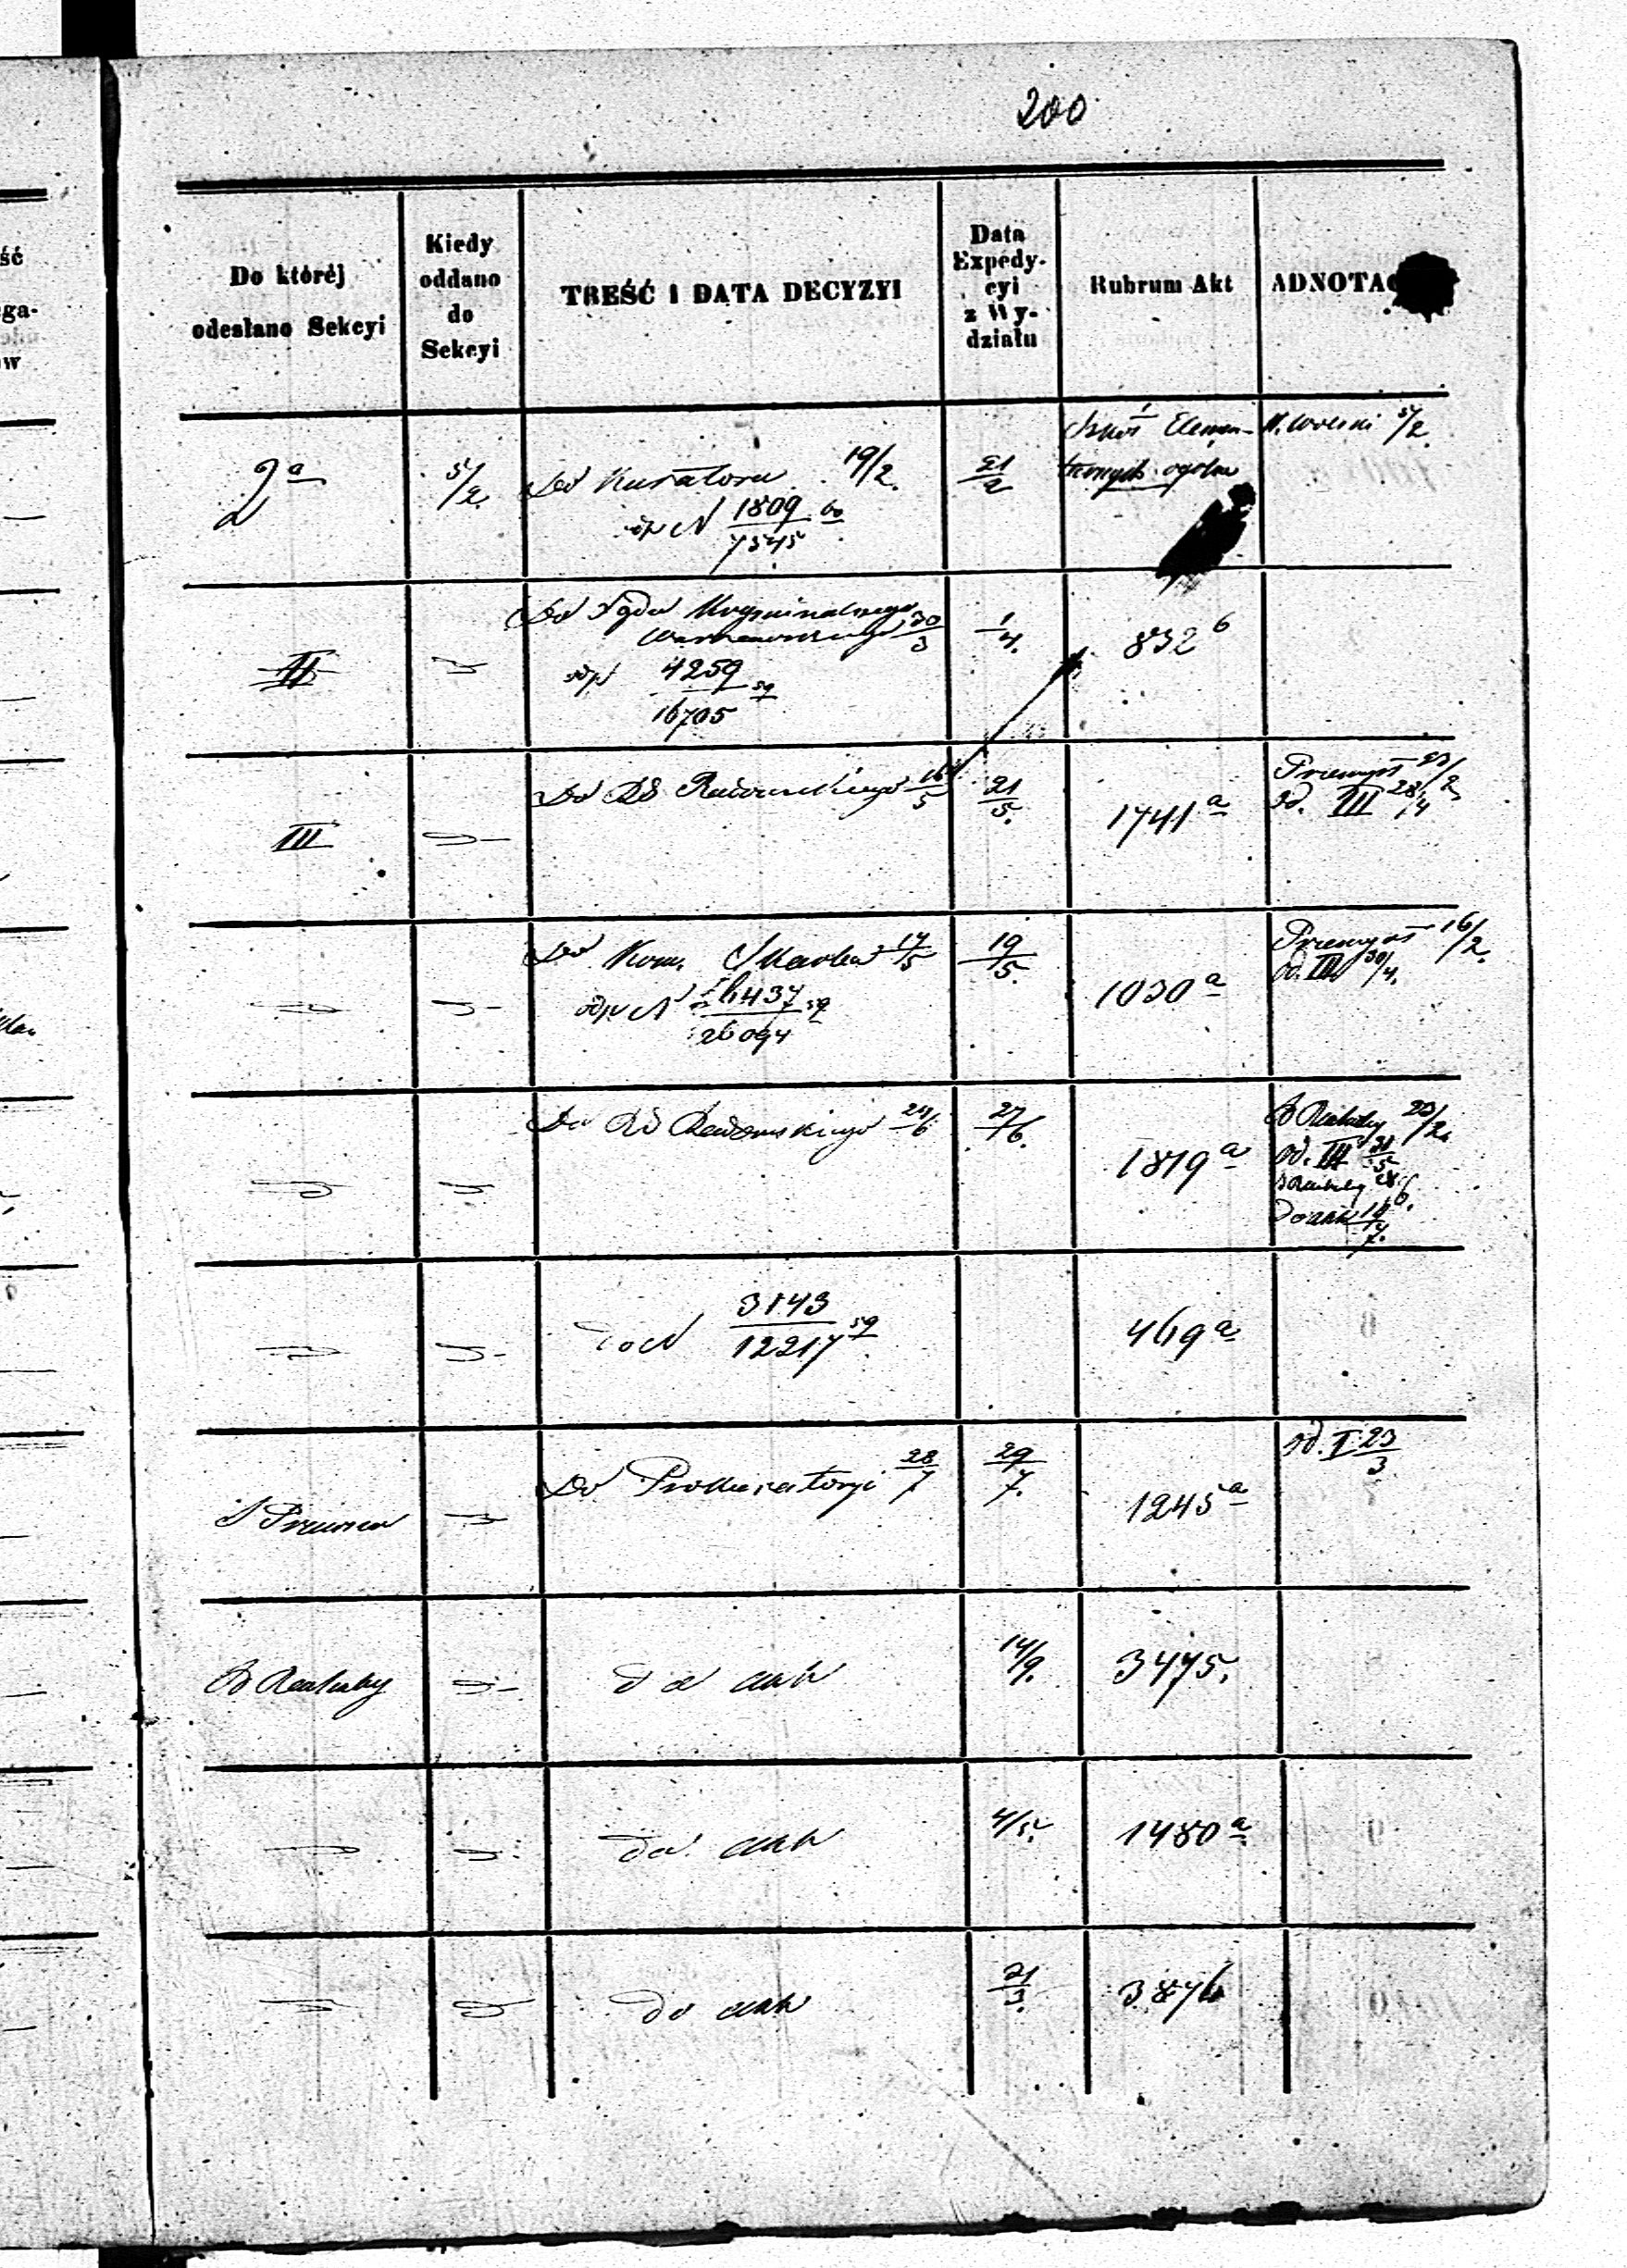 200
ść
ga-
w
Do któréj
odesłano Sekcyi
Kiedy
oddano
do
Sekcyi
TREŚĆ I DATA DECYZYI
Data
Expedy-
cyi
z Wy-
działu
Rubrum Akt
ADNOTAC
2a
5/2
Do Kuratora 19/2.
N 1809
7545
21/2
Szkół Elemen-
tarnych ogólne
5/2
II
Do Sądu Kryminalnego
Warszawskiego 30/3
4259
16705
1/4.
832 b
III
Do RG Radomskiego 16/5
21/5.
1741 a
Przemysł 23/2
od. III 28/4
Do Kom. Skarbu 17/5
N 6437
26094
19/5.
1030 a
Przemysł 16/2.
od. III 30/4.
Do RG Radomskiego 24/6
27/6.
1819 a
23/2.
od. III 21/5
do akt
do N 3143
12217
469 a
Do Prokuratoryi 28/7
29/7.
1245 a
od. I 23/3
do akt
14/9.
3475.
do akt
4/5.
1480 a
do akt
21/3.
3876